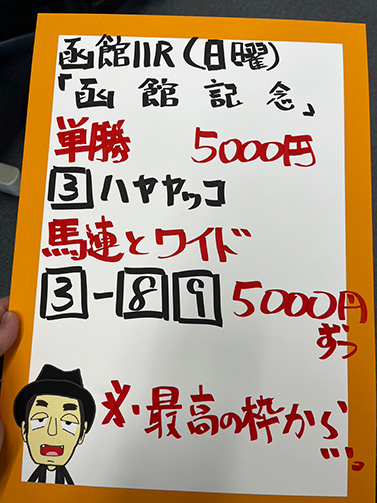 函館11R(日曜)
「函館記念」
単勝 5000円
3 ハヤヤッコ
馬連とワイド
3-8 9 5000円
ずつ
※・最高の枠から…。